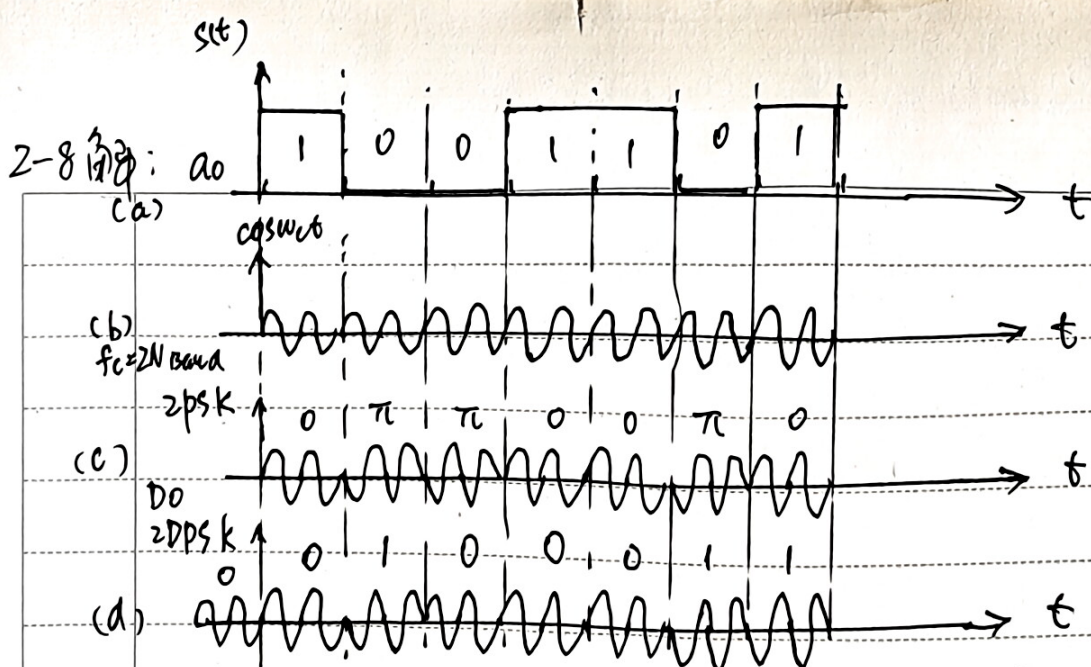 s(t)
1 0 0 1 1 0 1
2-8 a0
(a) t
cosωct
(b) t
fc=2N Baud
2psk 0 π π 0 0 π 0
(c) t
D0
2Dpsk 0 1 0 0 0 1 1
0
(d) t